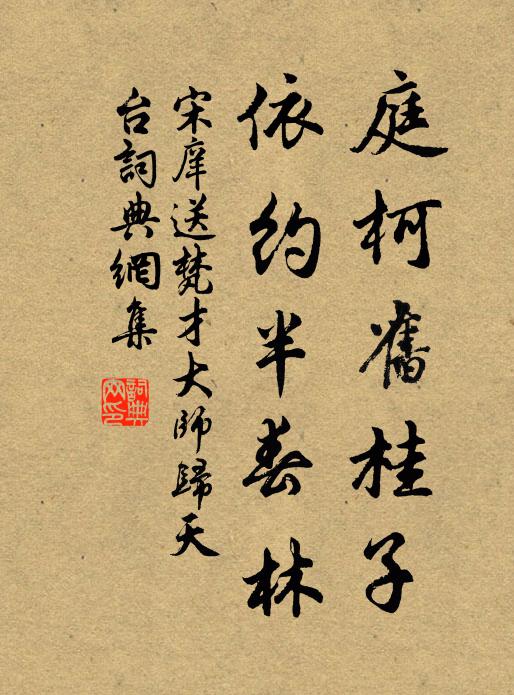 庭柯舊桂子
依約半春林
宋庠送梵才大師歸天
台詞典網集
詞典
网印